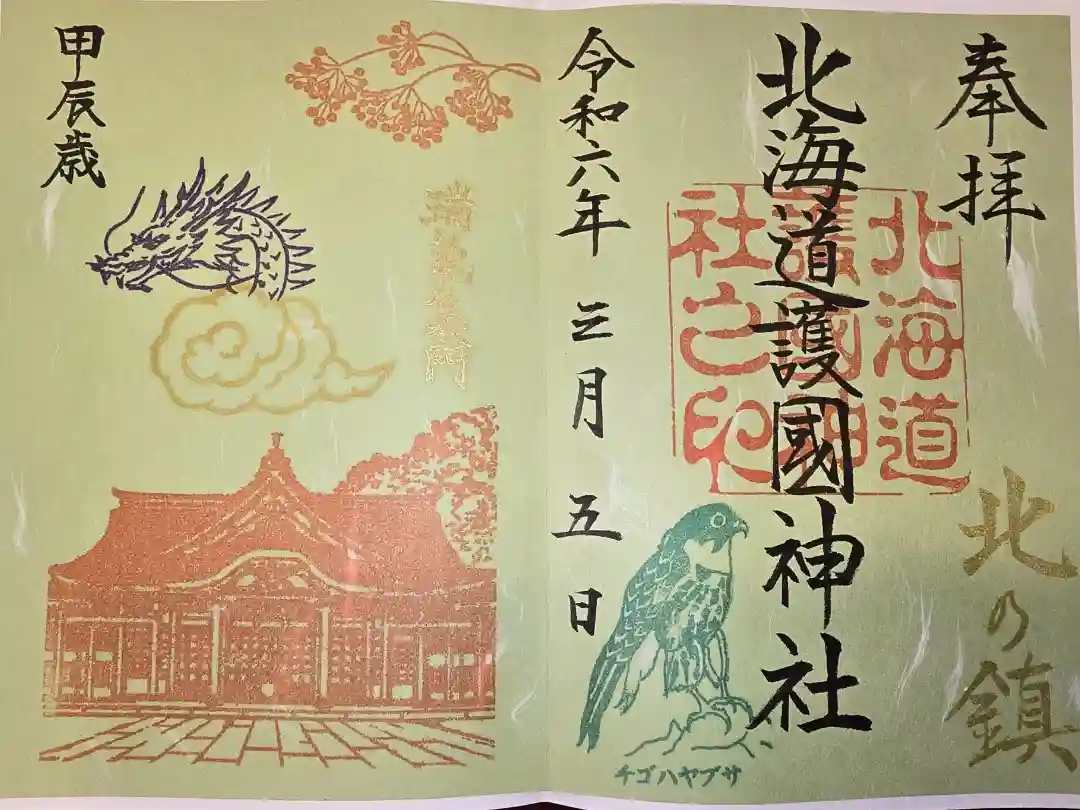 奉拝
北の鎮
北海道護國神社
北海道
護國神
社之印
令和六年 三月 五日
チゴハヤブサ
甲辰歳